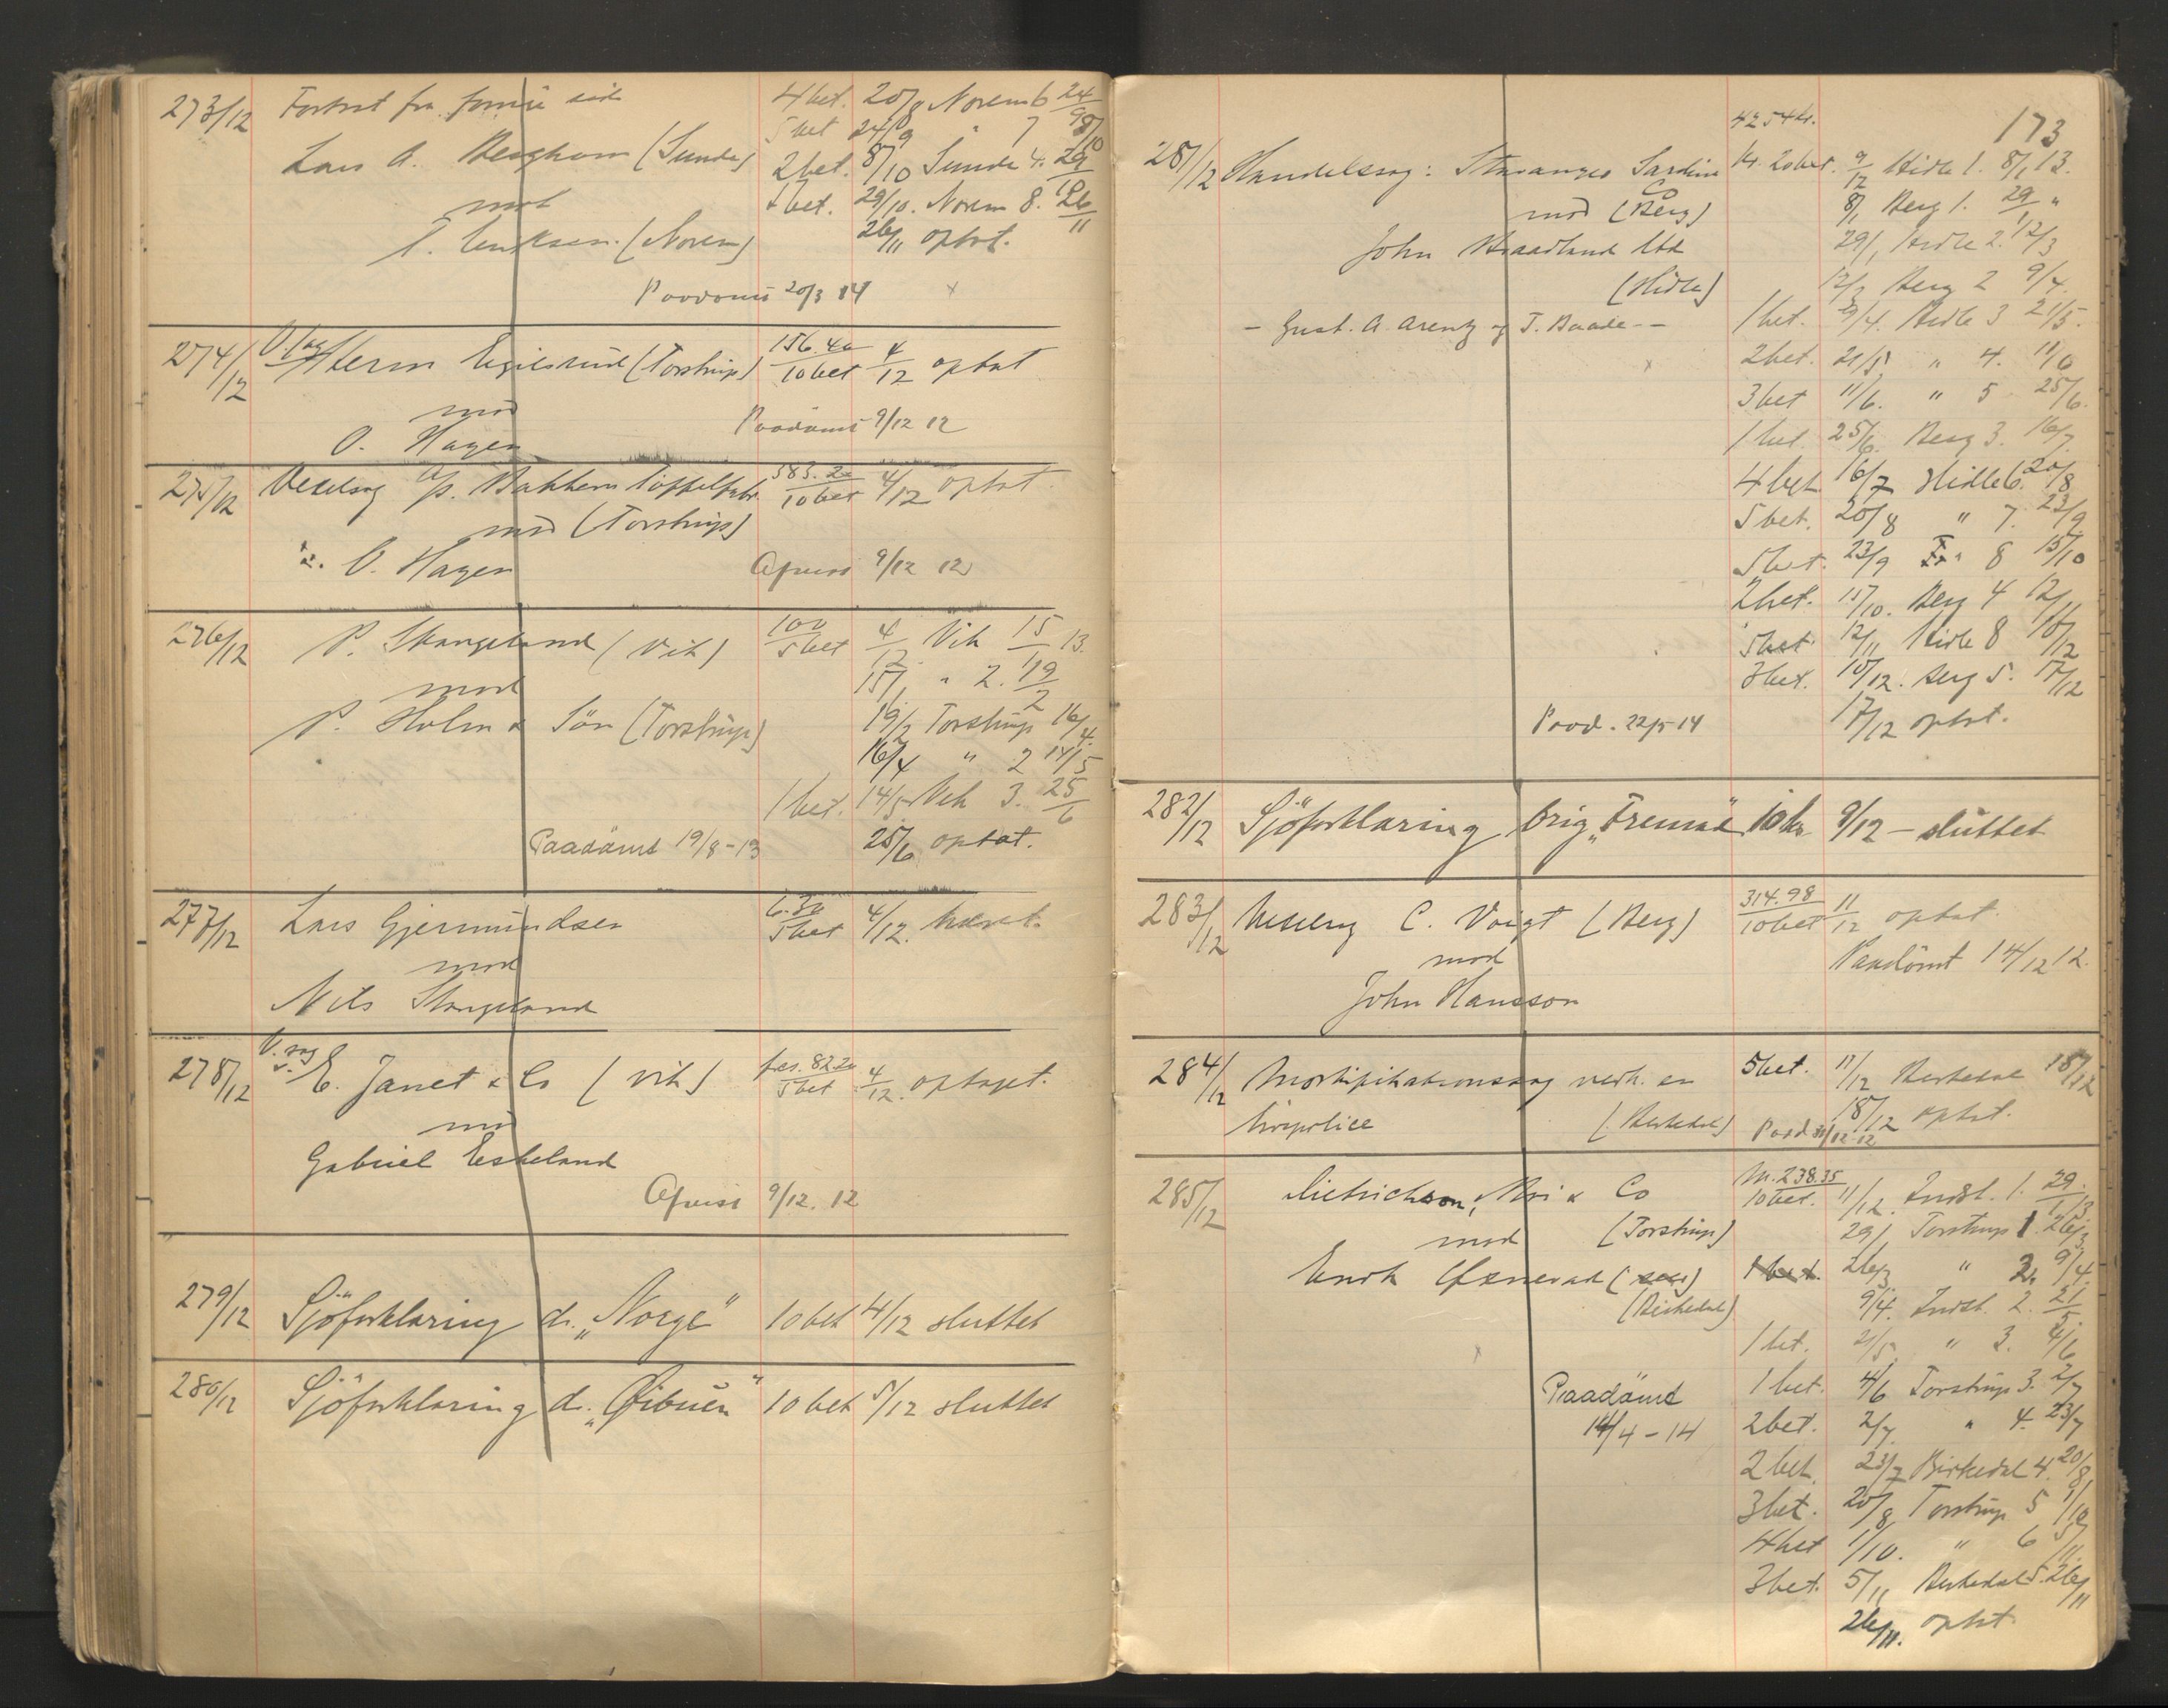 273/12 Fortsat fra forrige side 4 bet. 20/8 Norem 6 24/9
5 bet 24/9 " 7 8/10
Lars A. (Sunde) 2 bet. 8/10 Sunde 4. 29/10
mod 1 bet. 29/10. Norem 8. 26/11
T. Eriksen. (Norem) 26/11 optat.
Paadömt 20/3 14 x
274/12 V. sag Herm (Torstrup) 156.40 10 bet 4/12 optat
mod Paadömt 9/12 12
O. Hagen
275/12 Vexelsag A/S. Bakkens Töffelfabr. 583.20 10 bet 4/12 optat.
mod (Torstrup)
O. Hagen Afvist 9/12 12
276/12 P. Skangeland (Vik) 100 5 bet 4/12 Vik 15/1 13.
mod 15/1 " 2. 19/2
P. Holm & Sön (Torstrup) 19/2 Torstrup 16/4.
16/4 " 2 14/5
1 bet. 14/5 Vik 3. 25/6
Paadömt 19/8-13 25/6 optat.
277/12 Lars Gjermundsen 6.30 5 bet 4/12. hævet.
mod
Nils Skangeland
278/12 V. sag E. Janet & Co (Vik) fcs. 82.20 5 bet 4/12. optaget.
mod
Gabriel Eskeland
Afvist 9/12. 12
279/12 Sjöforklaring ds. "Norge" 10 bet 4/12 sluttet
280/12 Sjöforklaring ds. "Øibuen" 10 bet 5/12 sluttet
173
4254 kr.
281/12 Handelssag: Stavanger Sardine Co Kr. 20 bet. 9/12 Hidle 1. 8/1 13.
mod (Berg) 8/1 Berg 1. 29/1 "
John Braadland Ltd 29/1 Hidle 2. 12/3
(Hidle) 12/3 Berg 2 9/4.
- Gust. A. Arentz og T. Baade - - 1 bet. 9/4. Hidle 3 21/5.
x 2 bet. 21/5 " 4. 11/6
3 bet 11/6. " 5 25/6.
1 bet. 25/6. Berg 3. 16/7.
4 bet. 16/7 Hidle 6. 20/8
5 bet. 20/8 " 7. 23/9
5 bet. 23/9 " 8 15/10
2 bet. 15/10. Berg 4 12/11
5 bet. 12/11 Hidle 8 10/12
3 bet. 10/12. Berg 5. 17/12
Paad. 22/5 14 17/12 optat.
282/12 Sjöforklaring brig "Fremad" 10 kr 9/12 - sluttet
283/12 Vexelsag C. Voigt (Berg) 314.98 10 bet 11/12 optat.
mod Paadömt 14/12 12.
John Hansson
284/12 Mortifikationssag vedk. en 5 bet. 11/12 Birkedal 18/12
livspolice (Birkedal) Paad 31/12.12 18/12 optat.
285/12 Dietrichson, & Co M. 238.35 10 bet. 11/12. Indst. 1. 29/1 13
mod (Torstrup) 29/1 Torstrup 1. 26/3
Enok (selv) 1 bet. 26/3 " 2. 9/4.
(Birkedal) 9/4. Indst. 2. 21/5.
x 1 bet. 21/5. " 3. 4/6
Paadömt 1 bet. 4/6 Torstrup 3. 2/7
14/4-14 2 bet. 2/7. " 4. 23/7
2 bet. 23/7 Birkedal 4. 20/8
3 bet. 20/8 Torstrup 5 1/10
4 bet 1/10. " 6 5/11.
3 bet. 5/11 Birkedal 5. 26/11
26/11. optat.